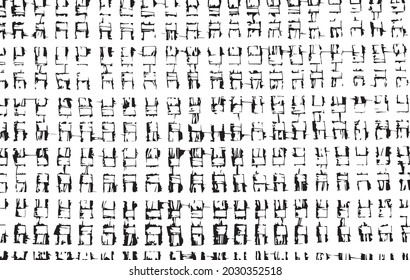 shutterstock.com · 2030352518